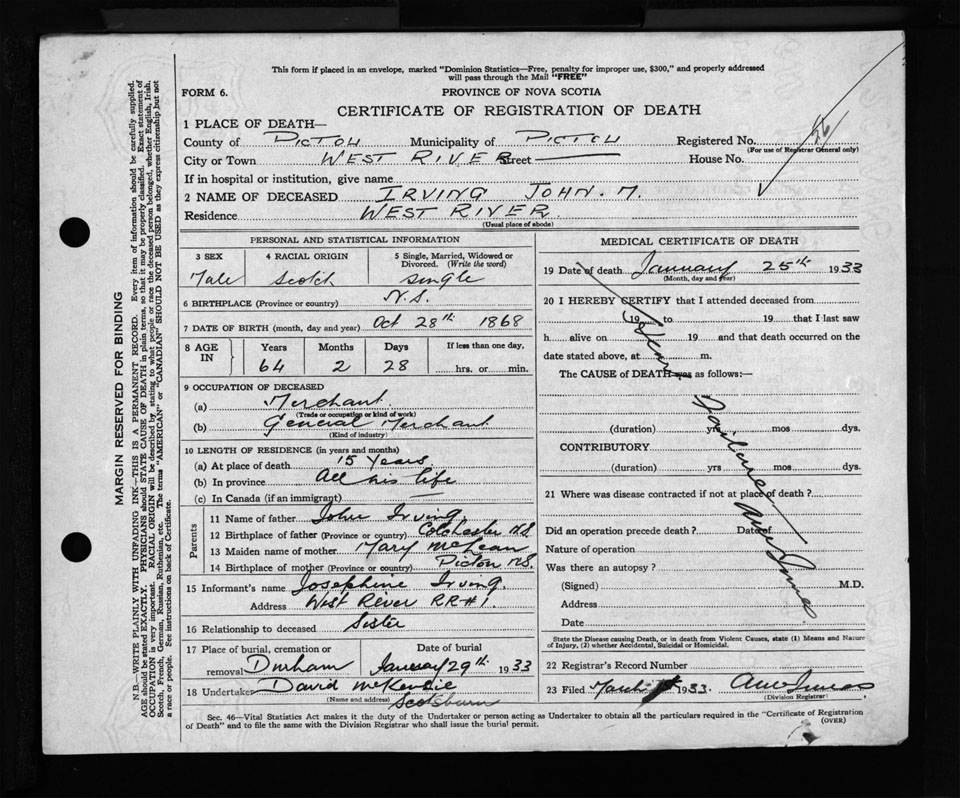 This form if placed in an envelope, marked "Dominion Statistics—Free, penalty for improper use, $300," and properly addressed
will pass through the Mail "FREE"
FORM 6.
PROVINCE OF NOVA SCOTIA
CERTIFICATE OF REGISTRATION OF DEATH
1 PLACE OF DEATH—
County of PICTOU Municipality of PICTOU Registered No.
(For use of Registrar General only)
City or Town WEST RIVER Street House No.
If in hospital or institution, give name
2 NAME OF DECEASED IRVING JOHN. M.
Residence WEST RIVER
(Usual place of abode)
PERSONAL AND STATISTICAL INFORMATION
3 SEX 4 RACIAL ORIGIN 5 Single, Married, Widowed or
Divorced. (Write the word)
Male Scotch Single
6 BIRTHPLACE (Province or country) N.S.
7 DATE OF BIRTH (month, day and year) Oct 28th 1868
8 AGE IN Years Months Days If less than one day,
64 2 28 hrs. or min.
9 OCCUPATION OF DECEASED
(a) Merchant
(Trade or occupation or kind of work)
(b) General Merchant
(Kind of industry)
10 LENGTH OF RESIDENCE (in years and months)
(a) At place of death 15 Years
(b) In province All his life
(c) In Canada (if an immigrant) —
Parents
11 Name of father John Irving
12 Birthplace of father (Province or country) Colchester N.S.
13 Maiden name of mother Mary McLean
14 Birthplace of mother (Province or country) Pictou N.S.
15 Informant's name Josephine Irving
Address West River RR#1
16 Relationship to deceased Sister
17 Place of burial, cremation or Date of burial
removal Durham January 29th 1933
18 Undertaker David McKenzie
(Name and address) Scotsburn
MEDICAL CERTIFICATE OF DEATH
19 Date of death January 25th 1933
(Month, day and year)
20 I HEREBY CERTIFY that I attended deceased from
19 to 19 that I last saw
h alive on 19 and that death occurred on the
date stated above, at m.
The CAUSE of DEATH was as follows:—
Heart Failure
(duration) yrs mos dys.
CONTRIBUTORY
(duration) yrs mos dys.
21 Where was disease contracted if not at place of death?
Did an operation precede death? Date of
Nature of operation
Was there an autopsy?
(Signed) M.D.
Address
Date
State the Disease causing Death, or in death from Violent Causes, state (1) Means and Nature
of Injury, (2) whether Accidental, Suicidal or Homicidal.
22 Registrar's Record Number
23 Filed March 1933
(Division Registrar)
Sec. 46—Vital Statistics Act makes it the duty of the Undertaker or person acting as Undertaker to obtain all the particulars required in the "Certificate of Registration
of Death" and to file the same with the Division Registrar who shall issue the burial permit.
(OVER)
MARGIN RESERVED FOR BINDING
N.B.—WRITE PLAINLY WITH UNFADING INK—THIS IS A PERMANENT RECORD. Every item of information should be carefully supplied.
AGE should be stated EXACTLY. PHYSICIANS should STATE CAUSE OF DEATH in plain terms, so that it may be properly classified. Exact statement of
OCCUPATION is very important. RACIAL ORIGIN will be described by stating to what people or race the deceased person belonged, whether English, Irish,
Scotch, French, German, Russian, Ruthenian, etc. The terms "AMERICAN" or "CANADIAN" SHOULD NOT BE USED as they express citizenship but not
a race or people. See instructions on back of Certificate.